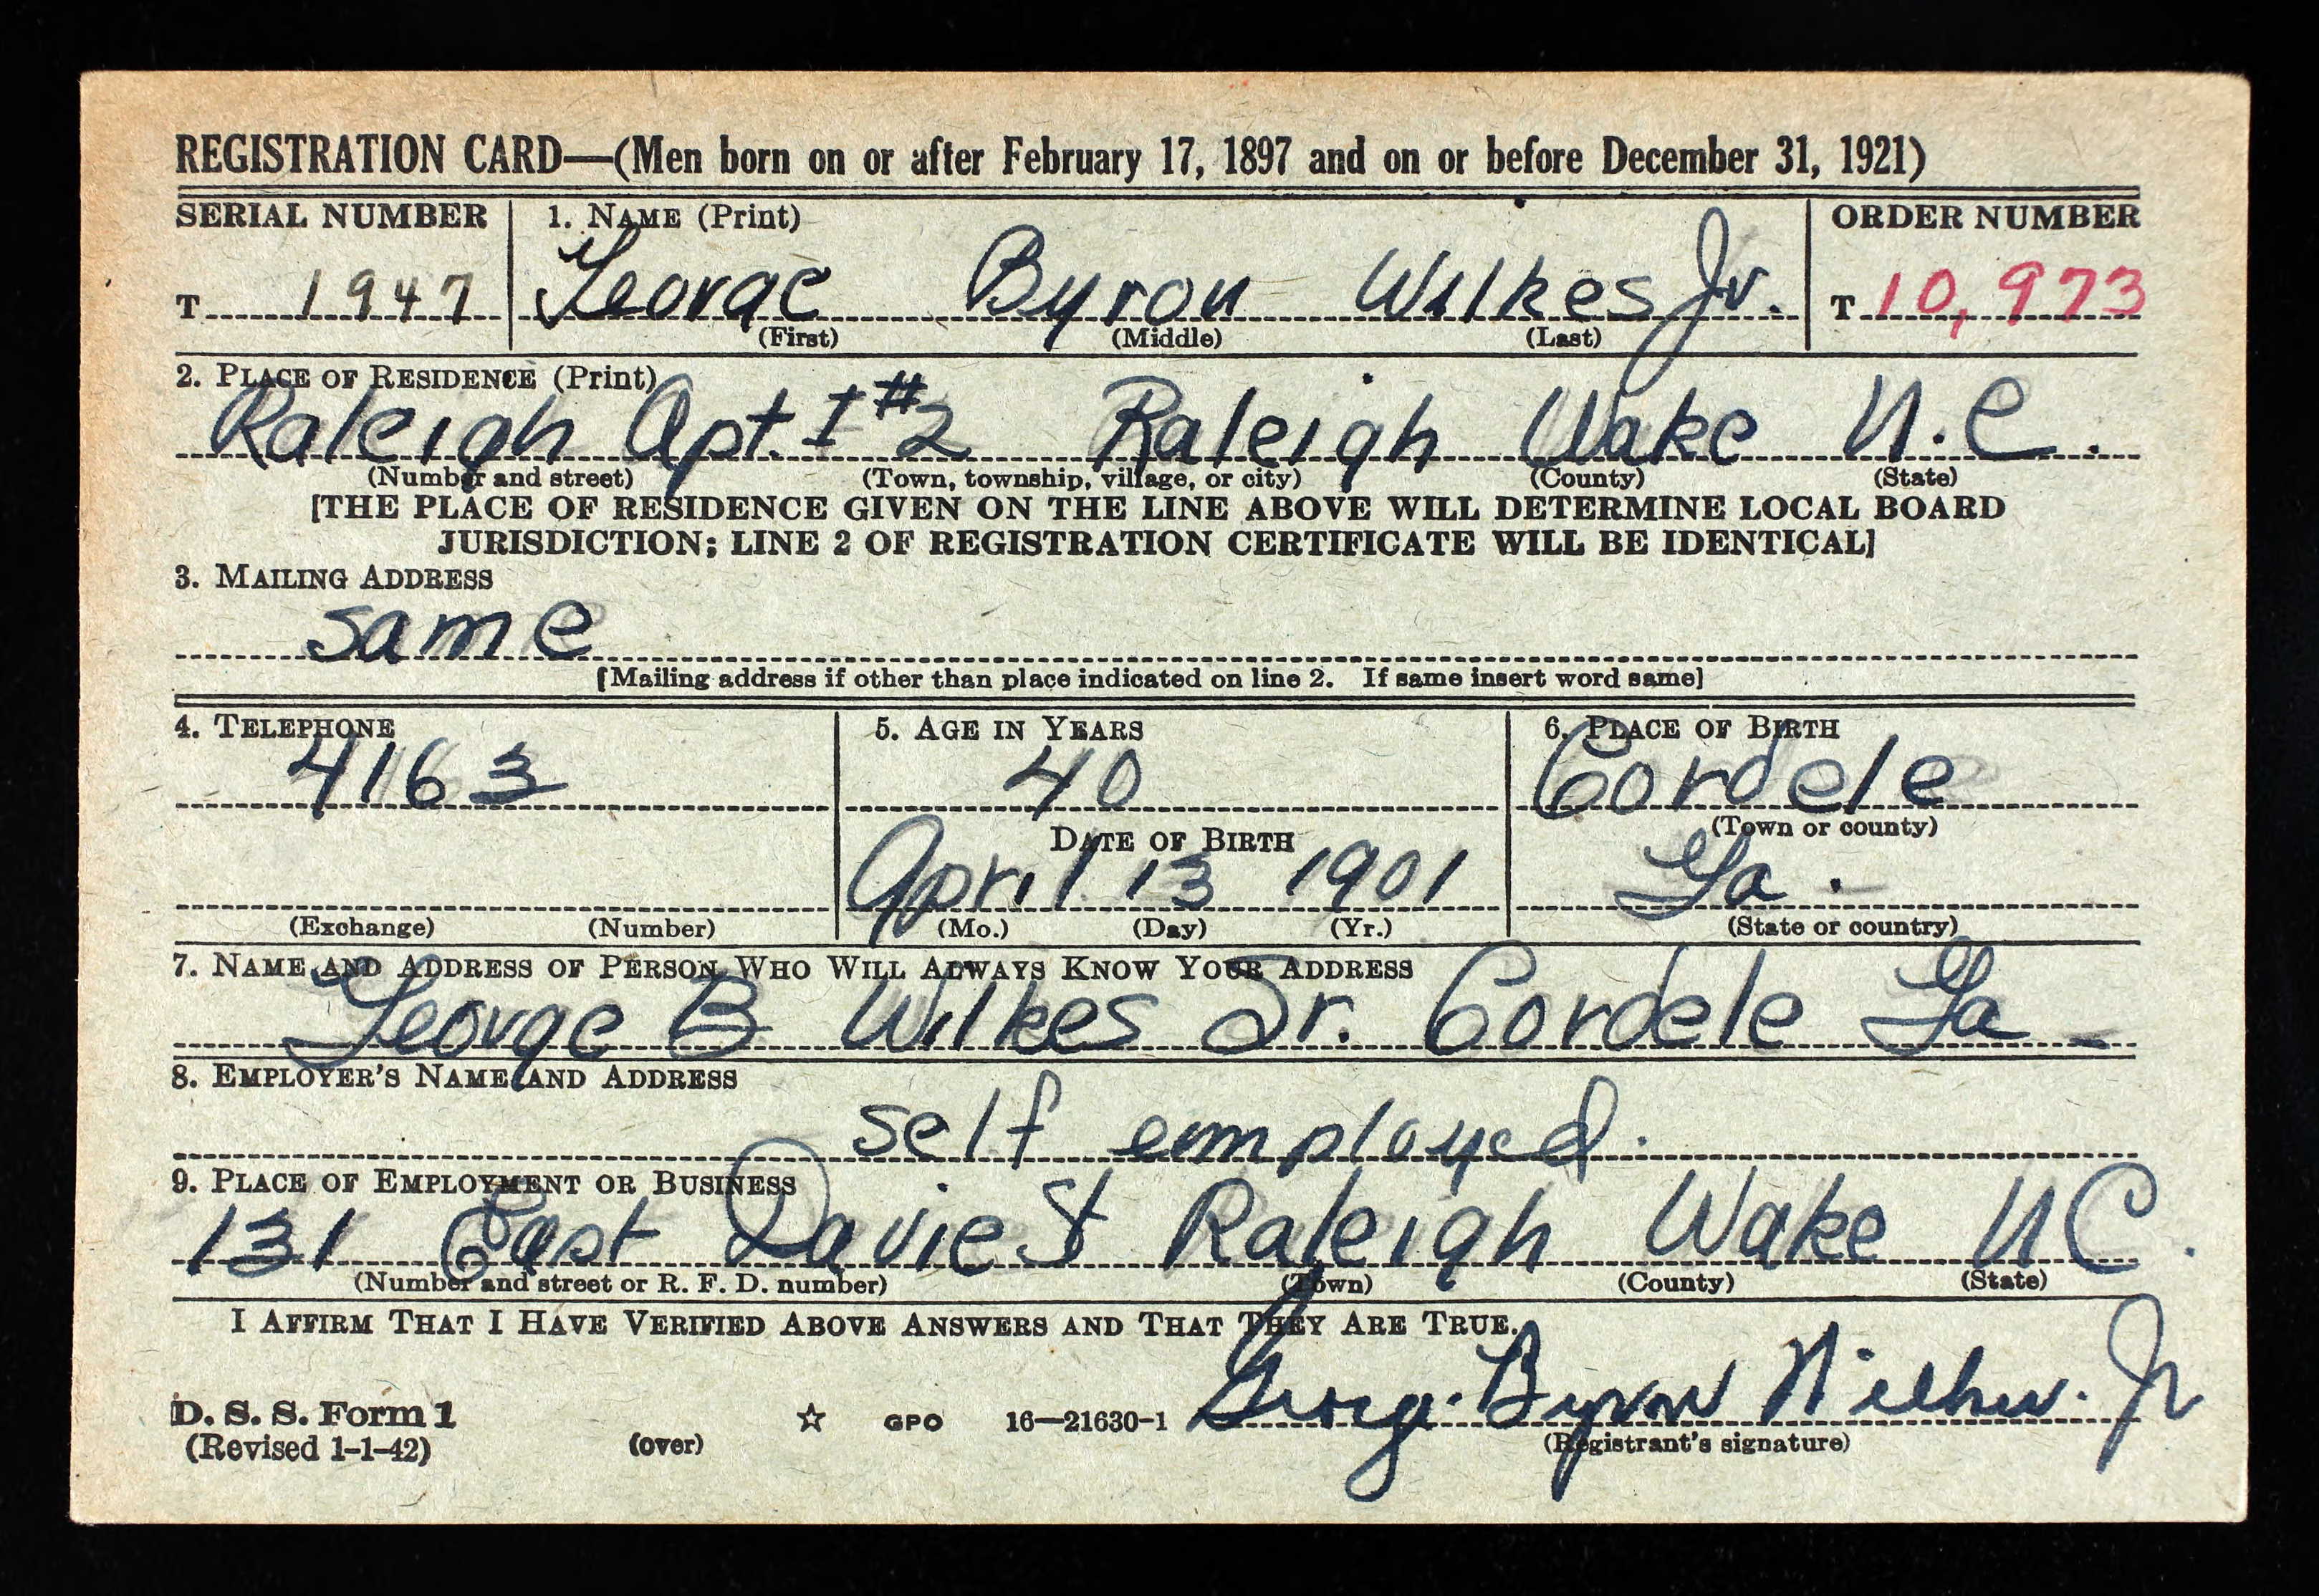 REGISTRATION CARD—(Men born on or after February 17, 1897 and on or before December 31, 1921)
SERIAL NUMBER 1. NAME (Print) ORDER NUMBER
T 1947 George Byron Wilkes Jr. T 10,973
(First) (Middle) (Last)
2. PLACE OF RESIDENCE (Print)
Raleigh Apt. I #2 Raleigh Wake N.C.
(Number and street) (Town, township, village, or city) (County) (State)
[THE PLACE OF RESIDENCE GIVEN ON THE LINE ABOVE WILL DETERMINE LOCAL BOARD
JURISDICTION; LINE 2 OF REGISTRATION CERTIFICATE WILL BE IDENTICAL]
3. MAILING ADDRESS
same
[Mailing address if other than place indicated on line 2. If same insert word same]
4. TELEPHONE 5. AGE IN YEARS 6. PLACE OF BIRTH
4163 40 Cordele
DATE OF BIRTH (Town or county)
April 13 1901 Ga.
(Exchange) (Number) (Mo.) (Day) (Yr.) (State or country)
7. NAME AND ADDRESS OF PERSON WHO WILL ALWAYS KNOW YOUR ADDRESS
George B Wilkes Sr. Cordele Ga
8. EMPLOYER'S NAME AND ADDRESS
self employed.
9. PLACE OF EMPLOYMENT OR BUSINESS
131 East Davie St Raleigh Wake NC.
(Number and street or R. F. D. number) (Town) (County) (State)
I AFFIRM THAT I HAVE VERIFIED ABOVE ANSWERS AND THAT THEY ARE TRUE.
George Byron Wilkes. Jr
D. S. S. Form 1 ☆ GPO 16—21630-1
(Revised 1-1-42) (over) (Registrant's signature)